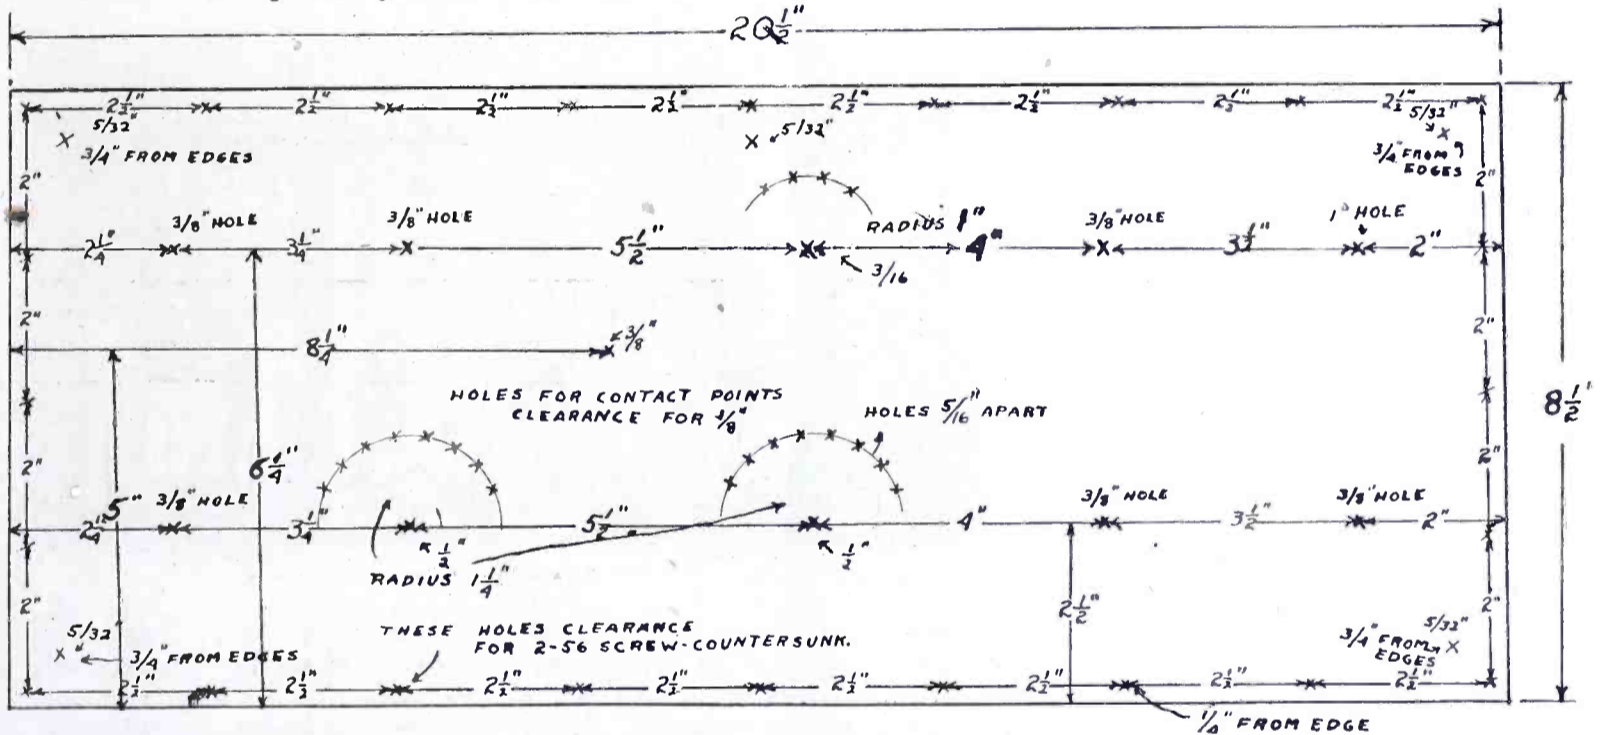 20 1/2"
2 1/2" 2 1/2" 2 1/2" 2 1/2" 2 1/2" 2 1/2" 2 1/2" 2 1/2"
5/32" 5/32" 5/32"
3/4" FROM EDGES
3/4" FROM
EDGES
2" 2"
3/8" HOLE 3/8" HOLE 3/8" HOLE 1" HOLE
RADIUS 1"
2 1/4" 3 1/4" 5 1/2" 4" 3 1/2" 2"
3/16
2" 2"
8 1/4" 3/8"
HOLES FOR CONTACT POINTS
CLEARANCE FOR 1/8"
HOLES 5/16" APART
8 1/2"
2" 6 1/4" 2"
5" 3/8" HOLE 3/8" HOLE 3/8" HOLE
2 1/4" 3 1/4" 5 1/2" 4" 3 1/2" 2"
1/2" 1/2"
RADIUS 1 1/4"
2" 2 1/2" 2"
THESE HOLES CLEARANCE
FOR 2-56 SCREW-COUNTERSUNK.
5/32" 5/32"
3/4" FROM EDGES
3/4" FROM
EDGES
2 1/2" 2 1/2" 2 1/2" 2 1/2" 2 1/2" 2 1/2" 2 1/2" 2 1/2"
1/4" FROM EDGE